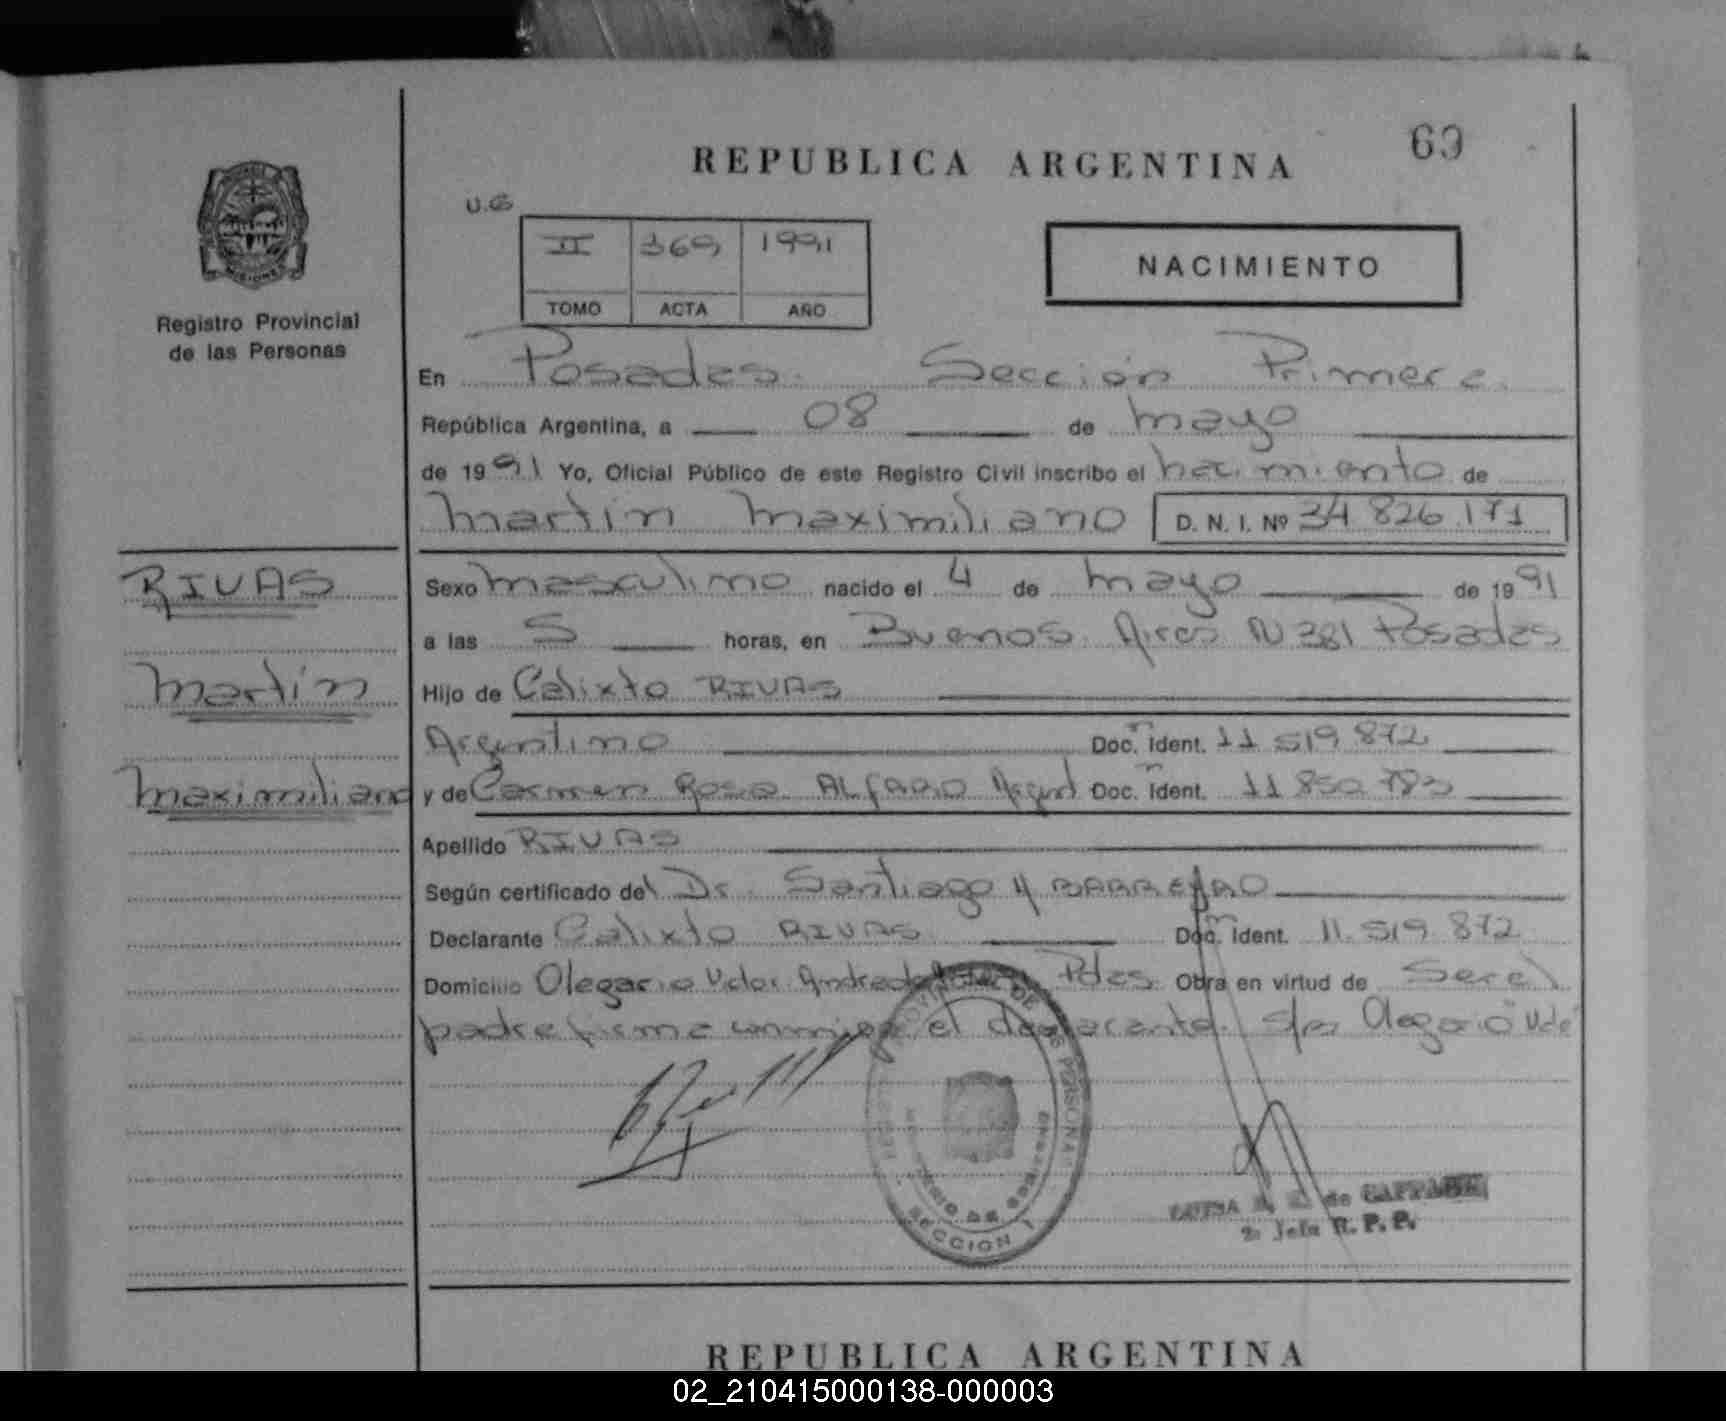 69
REPUBLICA ARGENTINA
U.G
II 369 1991
TOMO ACTA AÑO
NACIMIENTO
MISIONES
Registro Provincial
de las Personas
En Posadas. Sección Primera
República Argentina, a 08 de mayo
de 1991 Yo, Oficial Público de este Registro Civil inscribo el nacimiento de
Martin Maximiliano D. N. I. Nº 34 826 171
RIVAS
Martín
Maximiliano
Sexo masculino nacido el 4 de mayo de 1991
a las 5 horas, en Buenos Aires N 381 Posadas
Hijo de Calixto RIVAS
Argentino Doc. Ident. 11 519 872
y de Carmen Rosa ALFARO Argent Doc. Ident. 11 850 783
Apellido RIVAS
Según certificado del Dr. Santiago BARREYRO
Declarante Calixto RIVAS Doc. Ident. 11.519 872
Domicilio Olegario Victor Andrade Pdas. Obra en virtud de Ser el
padre firma conmigo el declarante. Olegario Vic
PROVINCIAL DE LAS PERSONAS
MINISTERIO DE GOBIERNO
SECCION 1
de
2º Jefe R. P. P.
REPUBLICA ARGENTINA
02_210415000138-000003